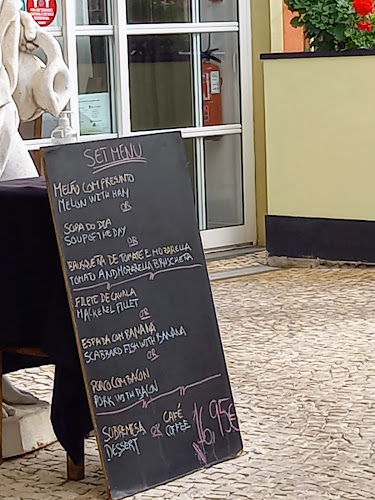 SET MENU
MELÃO COM PRESUNTO
MELON WITH HAM
OR
SOPA DO DIA
SOUP OF THE DAY
OR
BRUSQUETA DE TOMATE E MOZARELLA
TOMATO AND MOZARELLA BRUSCHETA
FILETE DE CAVALA
MACKEREL FILLET
OR
ESPADA COM BANANA
SCABBARD FISH WITH BANANA
OR
PORCO COM BACON
PORK WITH BACON
SOBREMESA OR CAFÉ
DESSERT COFFEE
16,95€